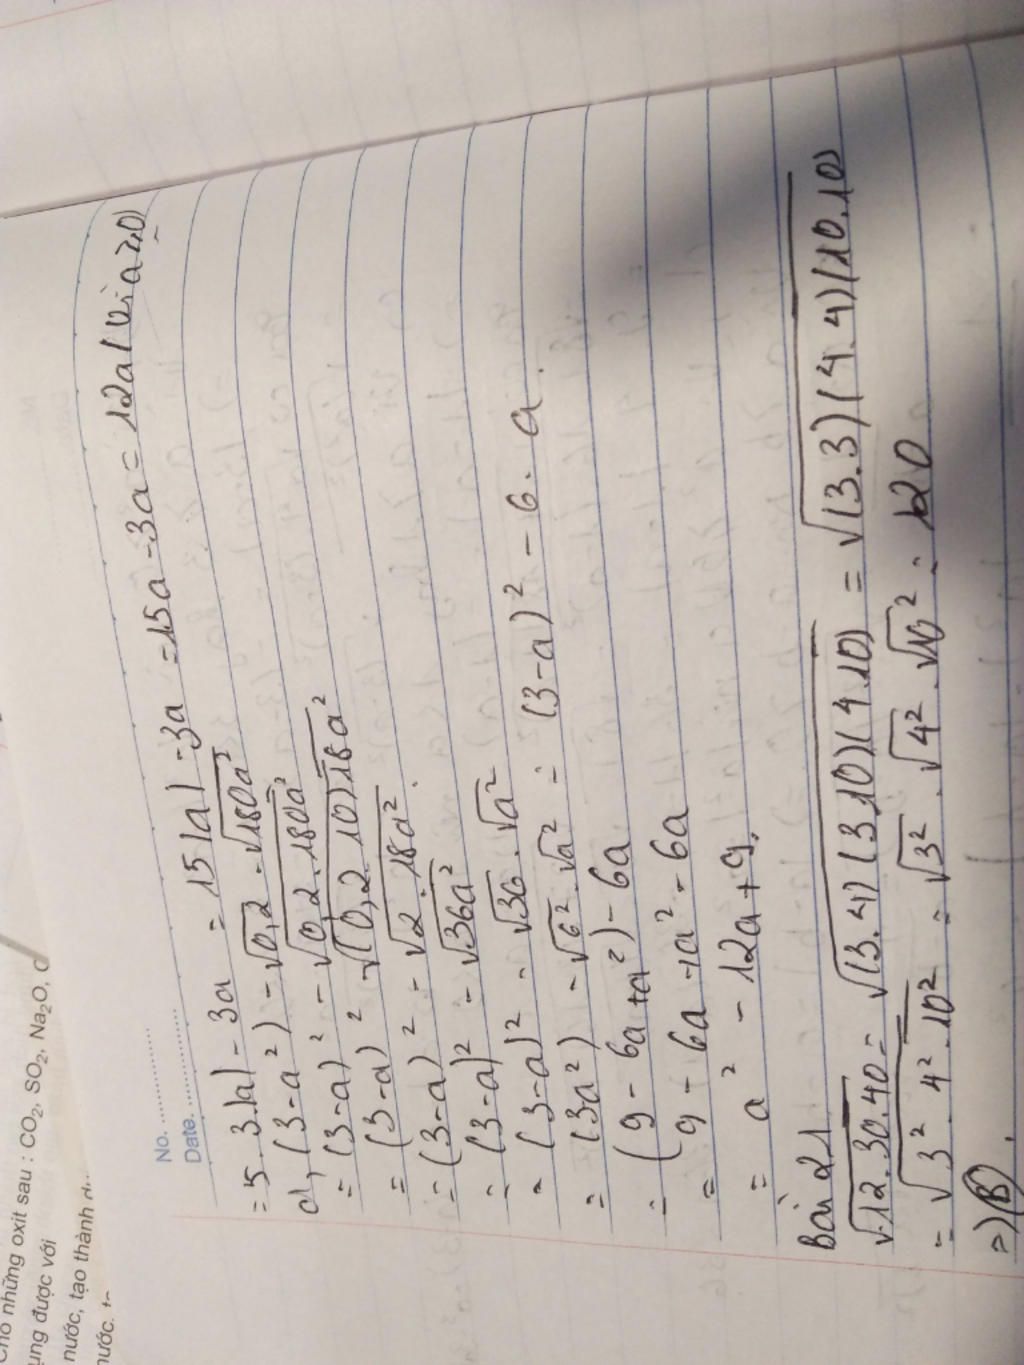 Cho những oxit sau : CO2, SO2, Na2O, C
ụng được với
nước, tạo thành d
nước. t
No. ..................
Date. ..................
= 5. 3.|a| - 3a = 15|a| - 3a = 15a - 3a = 12a (Vì a ≥ 0)
d, (3-a²) - √0,2 . √180a²
= (3-a)² - √0,2.180a²
= (3-a)² - √(0,2.10)18a²
= (3-a)² - √2.18a²
= (3-a)² - √36a²
= (3-a)² - √36 . √a²
= (3a²) - √6² . √a² = (3-a)² - 6. a
= (9 - 6a + a²) - 6a
= 9 - 6a + a² - 6a
= a² - 12a + 9.
Bài 21
√12.30.40 = √(3.4)(3.10)(4.10) = √(3.3)(4.4)(10.10)
= √3². 4². 10² = √3² . √4² . √10² = 120
=> (B).